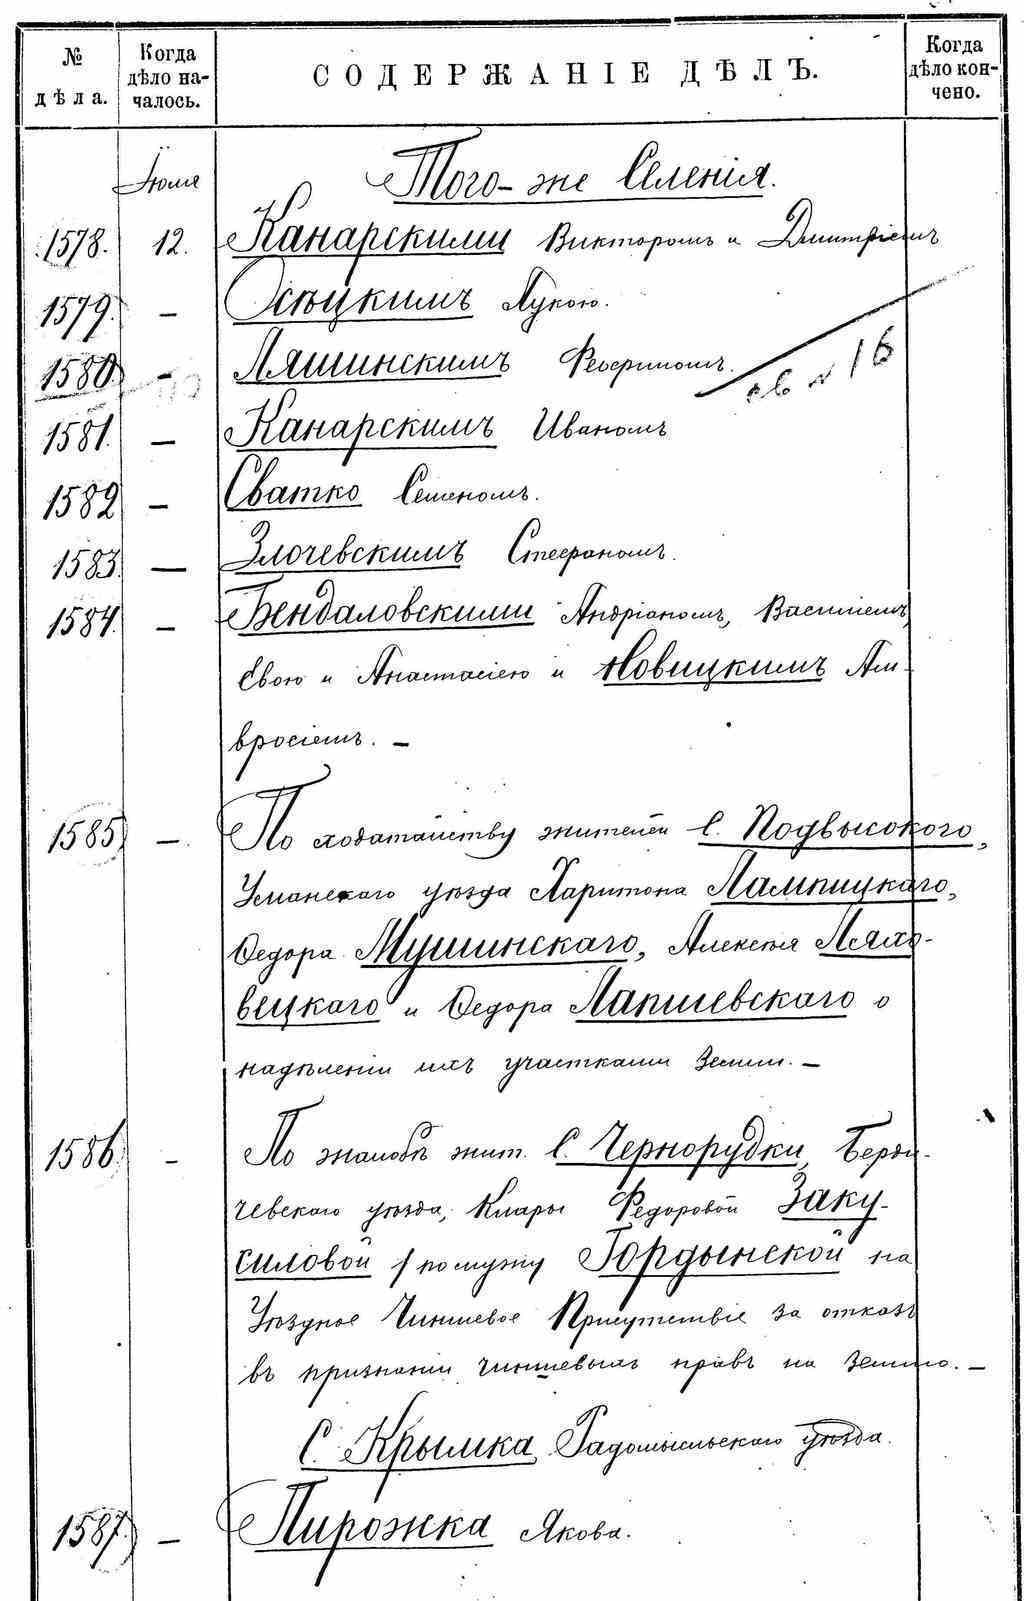 № дѣла.
Когда дѣло на-
чалось.
СОДЕРЖАНІЕ ДѢЛЪ.
Когда дѣло кон-
чено.
Іюля
Того-же Селенія.
1578. 12. Канарскими Викторомъ и Дмитріемъ
1579. — Осѣцкимъ Лукою.
1580. — Ляшинскимъ
св № 16
1581. — Канарскимъ Иваномъ
1582 — Сватко Семеномъ.
1583. — Злочевскимъ Стефаномъ.
1584. — Бендаловскими Андріаномъ, Василіемъ,
Евою и Анастасіею и Новицкимъ Ам-
вросіемъ. —
1585 —. По ходатайству жителей с. Подвысокого,
Уманскаго уѣзда Харитона Лампицкаго,
Ѳедора Мушинскаго, Алексѣя Ляхо-
вецкаго и Ѳедора Лапшевскаго о
надѣленіи ихъ участками земли. —
1586 - По жалобѣ жит. С. Чернорудки, Берди-
чевскаго уѣзда, Клары Федоровой Заку-
силовой / по мужу Гордынской на
Уѣздное Чиншевое Присутствіе за отказъ
въ признаніи чиншевыхъ правъ на землю. —
С. Крымка Радомысльскаго уѣзда.
1587. — Пирожка Якова.